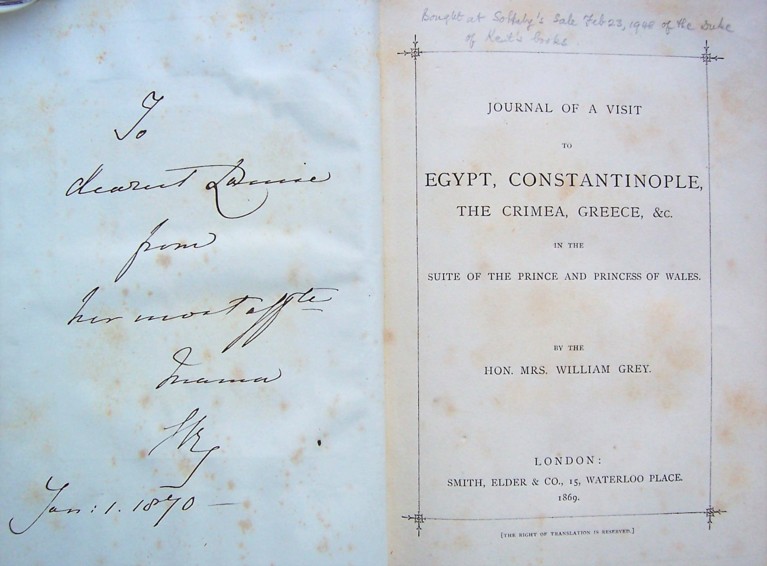 To
dearest Louise
from
her most affte
Mama
VR
Jan: 1. 1870 —
Bought at Sotheby's Sale Feb 23, 1948 of the Duke
of Kent's books
JOURNAL OF A VISIT
TO
EGYPT, CONSTANTINOPLE,
THE CRIMEA, GREECE, &c.
IN THE
SUITE OF THE PRINCE AND PRINCESS OF WALES.
BY THE
HON. MRS. WILLIAM GREY.
LONDON:
SMITH, ELDER & CO., 15, WATERLOO PLACE.
1869.
[THE RIGHT OF TRANSLATION IS RESERVED.]